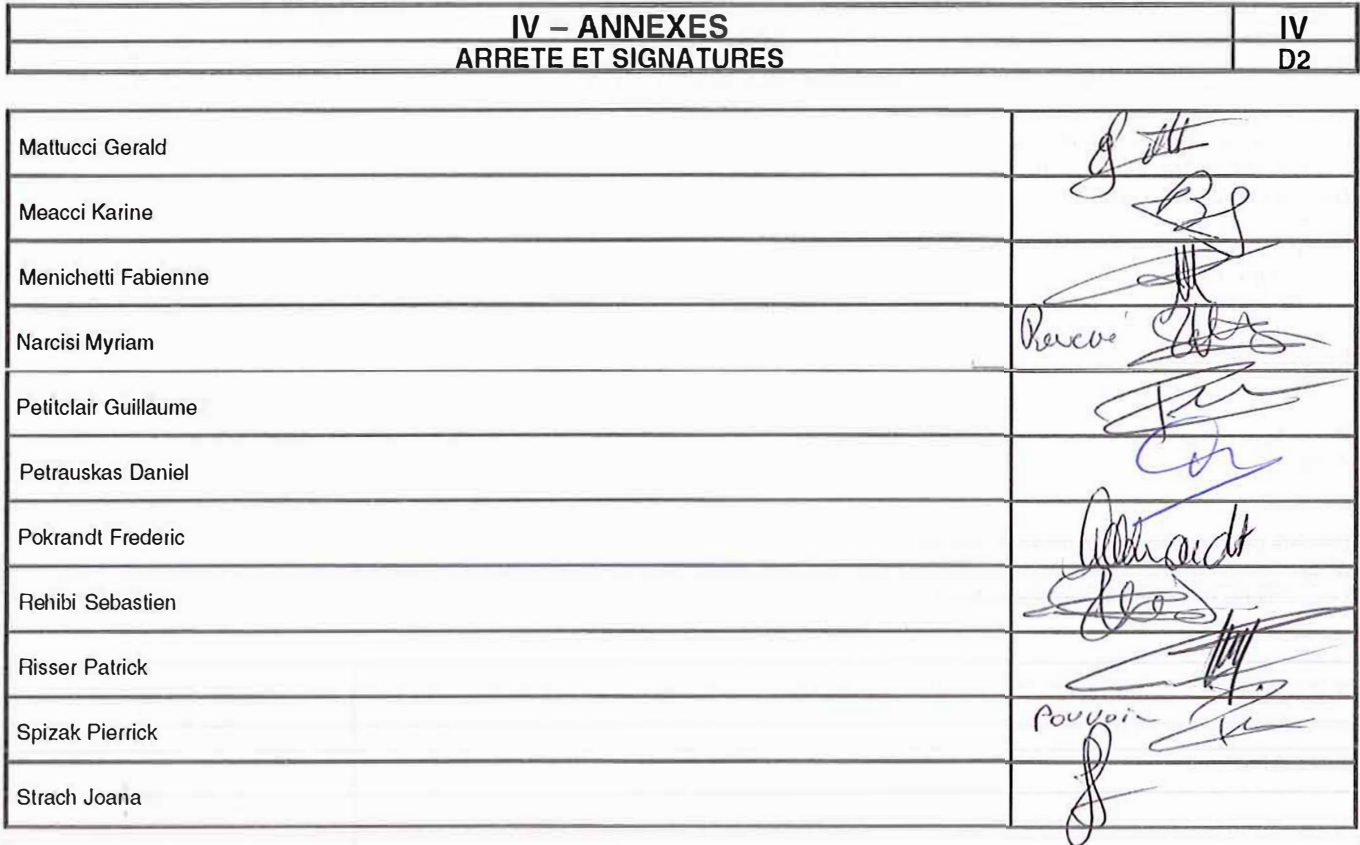 IV – ANNEXES
IV
ARRETE ET SIGNATURES
D2
Mattucci Gerald
Meacci Karine
Menichetti Fabienne
Narcisi Myriam
Petitclair Guillaume
Petrauskas Daniel
Pokrandt Frederic
Rehibi Sebastien
Risser Patrick
Spizak Pierrick
Pouvoir
Strach Joana